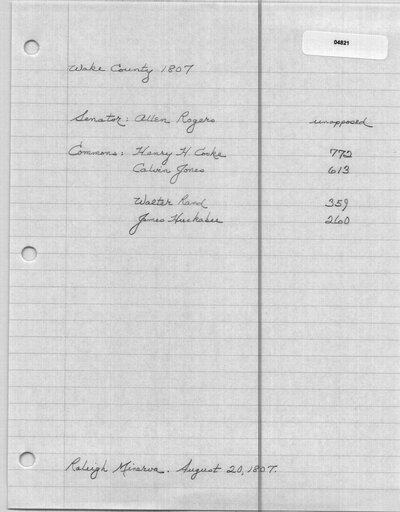 04821
Wake County 1807
Senator: Allen Rogers unopposed
Commons: Henry H. Cooke 772
Calvin Jones 613
Walter Rand 359
James Huckabee 260
Raleigh Minerva. August 20, 1807.